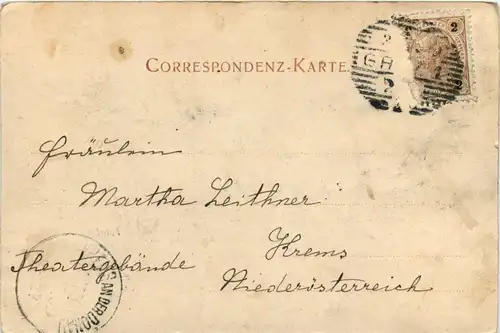 CORRESPONDENZ-KARTE.
2
GR
Fräulein
Martha Leithner
Krems
Theatergebände
Niederösterreich
AN DER DONAU